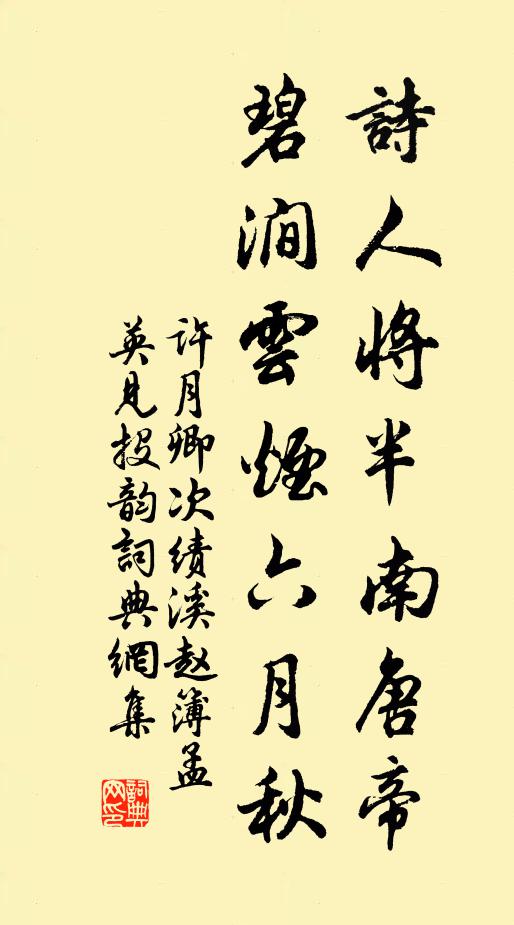 詩人將半南唐帝
碧澗雲煙六月秋
許月卿次績溪趙簿孟
英見投韵詞典網集
詞典网印